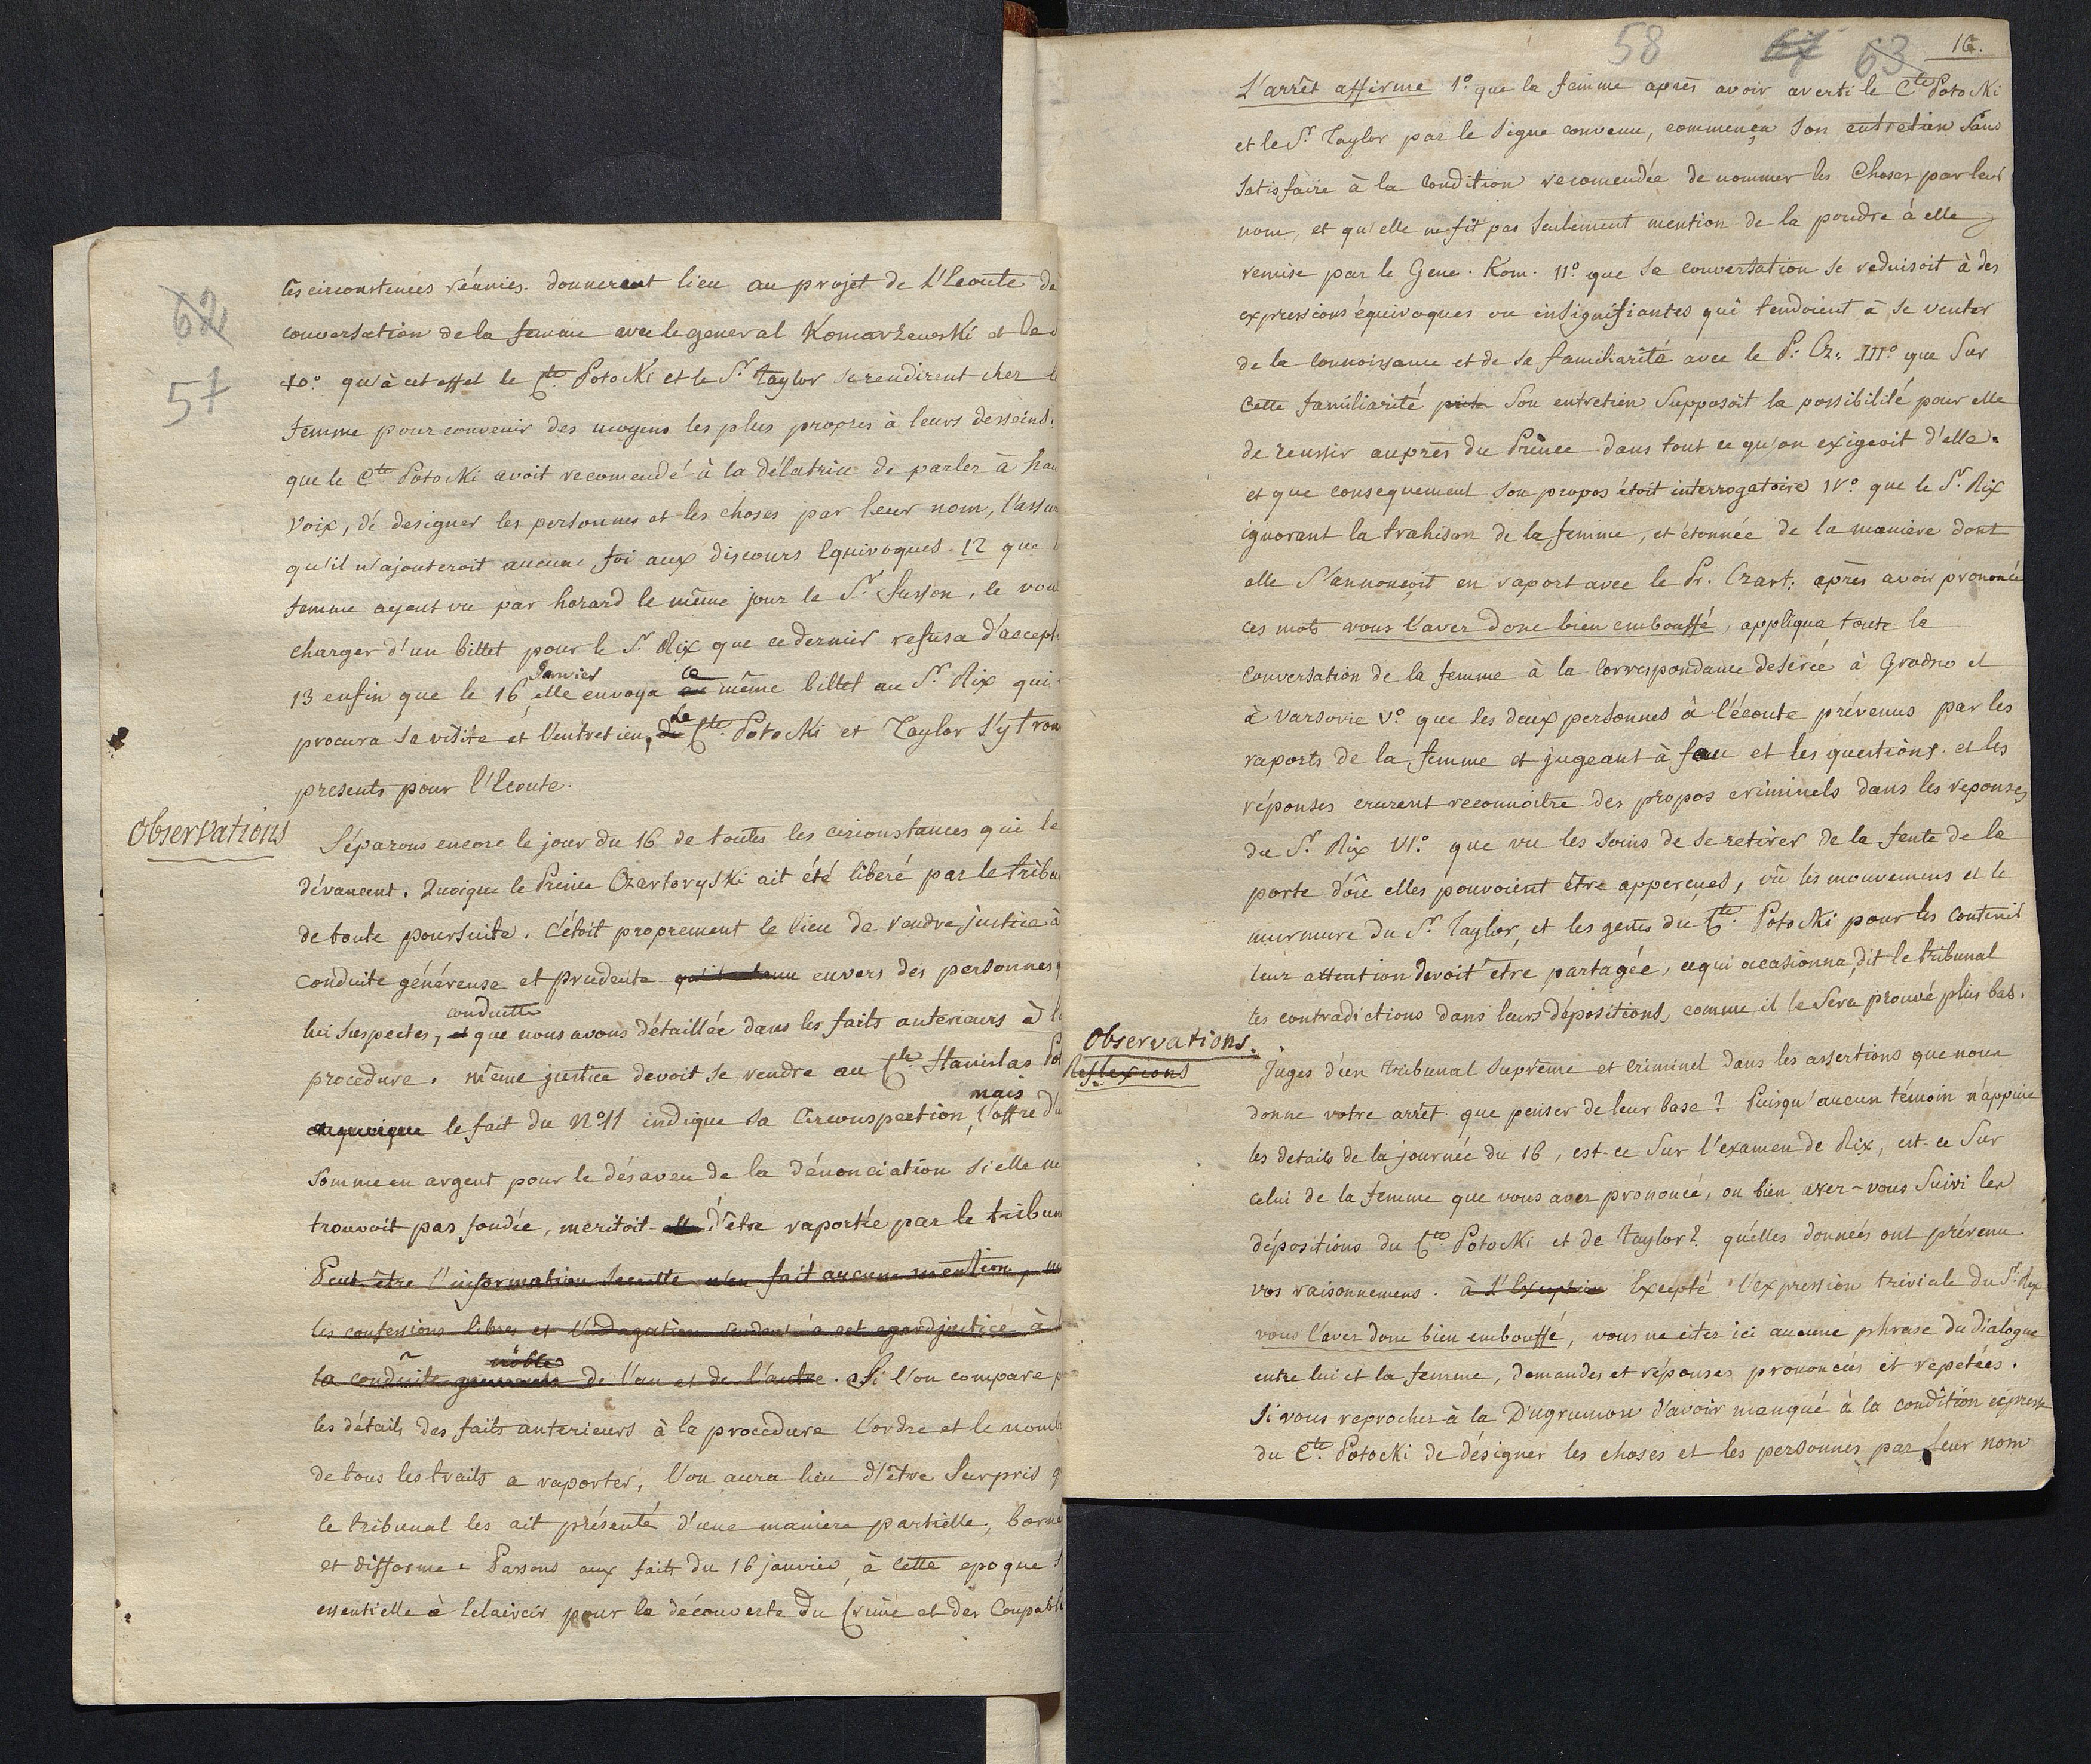 62
57
ces circonstences réunies. donnerent lieu au projet de l'Ecoute de
conversation de la femme avec le general Komarzewski et de
10.º qu'à cet effet le Cte. Potocki et le Sr. Taylor se rendirent chez l
femme pour convenir des moyens les plus propres à leurs desseins.
que le Cte Potocki avoit recomendé à la délatrice de parler à hau
voix, dé designer les personnes et les choses par leur nom, l'assur
qu'il n'ajouteroit aucune foi aux discours Equivoques. 12 que
femme ayant vu par hozard le même jour le Sr. Lusson, le vou
charger d'un billet pour le Sr. Rix que ce dernier refusa d'accept
Janvier ce
13 enfin que le 16, elle envoya même billet au Sr. Rix qui
Le
procura sa visite et l'entretien, du Cte. Potocki et Taylor s'y trou
presents pour l'Ecoute.
Observations
Séparons encore le jour du 16 de toutes les circonstances qui le
dévancent. Quoique le Prince Czartoryski ait été liberé par le tribu
de toute poursuite. C'étoit proprement le lieu de rendre justice à
conduite généreuse et prudente envers des personnes
conduitte
lui suspectes, et que nous avons détaillée dans les faits anterieurs à l
procedure. même justice devoit se rendre au Cte. Stanislas Pot
mais
le fait du Nº 11 indique sa Circonspection, l'offre d'u
somme en argent pour le désaveu de la dénonciation si elle ne
trouvoit pas fondée, meritoit d'être raportée par le tribun
Peut être l'information secrette n'en fait aucune mention,
les confessions libres et l'indagation rendent à cet egard justice à
nobles
la conduite de l'un et de l'autre. Si l'on compare p
les détails des faits anterieurs à la procedure l'ordre et le nomb
de tous les traits a raporter, l'on aura lieu d'être surpris q
le tribunal les ait présenté d'une maniere partielle, borné
et difforme. Passons aux faits du 16 janvier, à cette epoque s
essentielle à éclaircir pour la découverte du Crime et des Coupable
58 67 63 16.
L'arrêt affirme 1º que la femme après avoir averti le Cte Potocki
et le Sr. Taylor par le signe convenu, commença son entretien sans
satisfaire à la condition recomendée de nommer les Choses par leur
nom, et qu'elle ne fit pas seulement mention de la poudre à elle
remise par le Gene. Kom. IIº que sa conversation se reduisoit à des
expressions équivoques ou insignifiantes qui tendoient à se venter
de la connoissance et de sa familiarité avec le P. Cz. IIIº que sur
cette familiarité son entretien supposoit la possibilité pour elle
de reussir auprès du Prince dans tout ce qu'on exigeoit d'elle.
et que consequement son propos étoit interrogatoire IVº que le Sr. Rix
ignorant la trahison de la femme, et étonnée de la maniere dont
elle s'annonçoit en raport avec le Pr. Czart. après avoir prononcé
ces mots vous l'avez donc bien embouffé, appliqua toute la
conversation de la femme à la Correspondance desirée à Grodno et
à Varsovie Vº que les deux personnes à l'écoute prévenus par les
raports de la femme et jugeant à faux et les questions et les
réponses crurent reconnoitre des propos criminels dans les reponses
du Sr. Rix VIº que vu les soins de se retirer de la fente de la
porte d'où elles pouvoient être apperçues, vû les mouvemens et le
murmure du Sr. Taylor, et les gestes du Cte. Potocki pour les contenir
leur attention devoit être partagée, ce qui occasionna, dit le tribunal
les contradictions dans leurs dépositions, comme il le sera prouvé plus bas.
Observations.
Reflexions
Juges d'un tribunal suprême et criminel dans les assertions que nous
donne votre arrêt que penser de leur base? Puisqu'aucun témoin n'appuie
les details de la journée du 16, est-ce sur l'examen de Rix, est-ce sur
celui de la femme que vous avez prononcé, ou bien avez-vous suivi les
dépositions du Cte Potocki et de Taylor? quelles données ont prévenu
vos raisonnemens. à l'Exeption Excepté l'expression triviale du Sr. Rix
vous l'avez donc bien embouffé, vous ne citez ici aucune phrase du dialogue
entre lui et la femme, demandes et réponses prononcées et repetées.
Si vous reprochez à la D'ugrumow d'avoir manqué à la condition expresse
du Cte. Potocki de désigner les choses et les personnes par leur nom